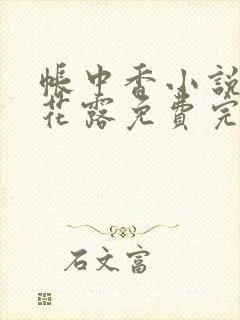 帳中香小說
花露免費完
石文富